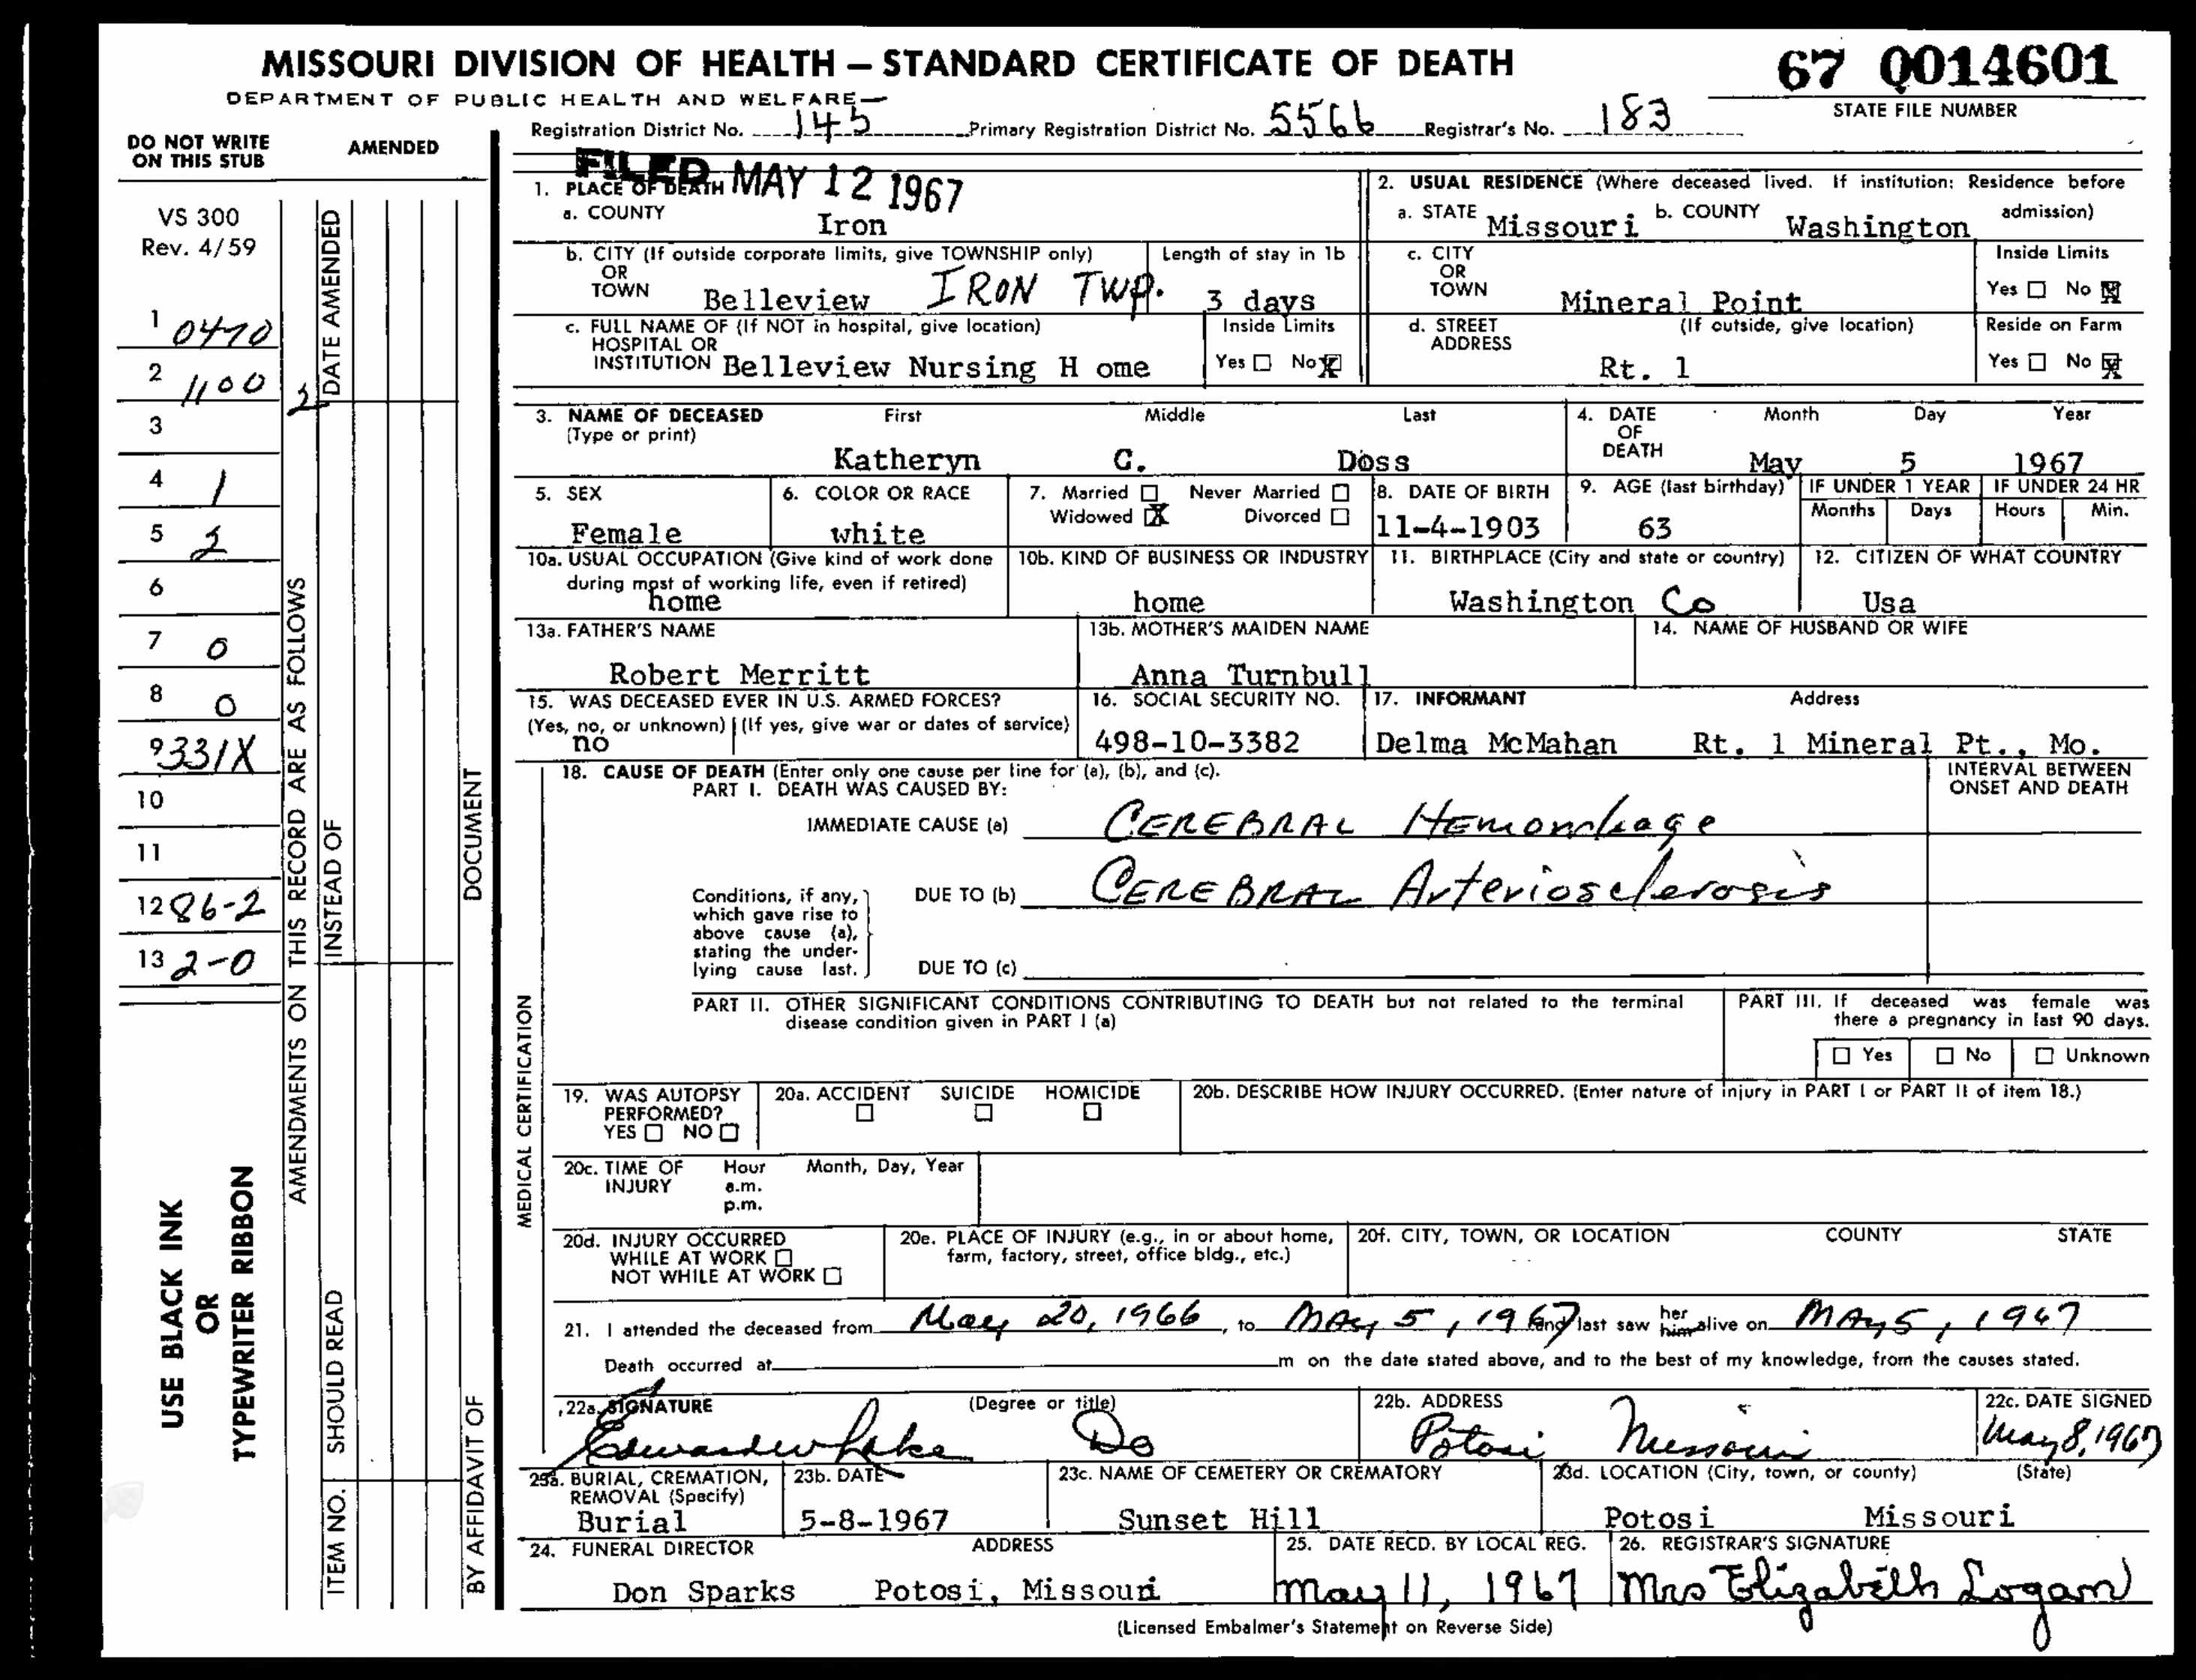 MISSOURI DIVISION OF HEALTH — STANDARD CERTIFICATE OF DEATH
67 0014601
DEPARTMENT OF PUBLIC HEALTH AND WELFARE
STATE FILE NUMBER
Registration District No. 145 Primary Registration District No. 5566 Registrar's No. 183
DO NOT WRITE
ON THIS STUB
AMENDED
VS 300
Rev. 4/59
1 0470
2 1100
3
4 1
5 2
6
7 0
8 0
9 331X
10
11
12 86-2
13 2-0
USE BLACK INK
OR
TYPEWRITER RIBBON
2
AMENDMENTS ON THIS RECORD ARE AS FOLLOWS
DATE AMENDED
INSTEAD OF
SHOULD READ
ITEM NO.
DOCUMENT
BY AFFIDAVIT OF
MEDICAL CERTIFICATION
FILED MAY 12 1967
1. PLACE OF DEATH
a. COUNTY
Iron
2. USUAL RESIDENCE (Where deceased lived. If institution: Residence before
admission)
a. STATE Missouri b. COUNTY Washington
b. CITY (If outside corporate limits, give TOWNSHIP only)
OR
TOWN Belleview IRON TWP.
Length of stay in 1b
3 days
c. CITY
OR
TOWN Mineral Point
Inside Limits
Yes No X
c. FULL NAME OF (If NOT in hospital, give location)
HOSPITAL OR
INSTITUTION Belleview Nursing H ome
Inside Limits
Yes No X
d. STREET
ADDRESS
(If outside, give location)
Rt. 1
Reside on Farm
Yes No X
3. NAME OF DECEASED
(Type or print)
First Middle Last
Katheryn C. Doss
4. DATE
OF
DEATH
Month Day Year
May 5 1967
5. SEX
Female
6. COLOR OR RACE
white
7. Married Never Married
Widowed X Divorced
8. DATE OF BIRTH
11-4-1903
9. AGE (last birthday)
63
IF UNDER 1 YEAR
Months Days
IF UNDER 24 HR
Hours Min.
10a. USUAL OCCUPATION (Give kind of work done
during most of working life, even if retired)
home
10b. KIND OF BUSINESS OR INDUSTRY
home
11. BIRTHPLACE (City and state or country)
Washington Co
12. CITIZEN OF WHAT COUNTRY
Usa
13a. FATHER'S NAME
Robert Merritt
13b. MOTHER'S MAIDEN NAME
Anna Turnbull
14. NAME OF HUSBAND OR WIFE
15. WAS DECEASED EVER IN U.S. ARMED FORCES?
(Yes, no, or unknown) (If yes, give war or dates of service)
no
16. SOCIAL SECURITY NO.
498-10-3382
17. INFORMANT Address
Delma McMahan Rt. 1 Mineral Pt., Mo.
18. CAUSE OF DEATH (Enter only one cause per line for (a), (b), and (c).
PART I. DEATH WAS CAUSED BY:
INTERVAL BETWEEN
ONSET AND DEATH
IMMEDIATE CAUSE (a) CEREBRAL Hemorrhage
Conditions, if any,
which gave rise to
above cause (a),
stating the under-
lying cause last.
DUE TO (b) CEREBRAL Arteriosclerosis
DUE TO (c)
PART II. OTHER SIGNIFICANT CONDITIONS CONTRIBUTING TO DEATH but not related to the terminal
disease condition given in PART I (a)
PART III. If deceased was female was
there a pregnancy in last 90 days.
Yes No Unknown
19. WAS AUTOPSY
PERFORMED?
YES NO
20a. ACCIDENT SUICIDE HOMICIDE
20b. DESCRIBE HOW INJURY OCCURRED. (Enter nature of injury in PART I or PART II of item 18.)
20c. TIME OF
INJURY
Hour
a.m.
p.m.
Month, Day, Year
20d. INJURY OCCURRED
WHILE AT WORK
NOT WHILE AT WORK
20e. PLACE OF INJURY (e.g., in or about home,
farm, factory, street, office bldg., etc.)
20f. CITY, TOWN, OR LOCATION COUNTY STATE
21. I attended the deceased from May 20, 1966, to MAy 5, 1967 and last saw her him alive on MAy 5, 1967
Death occurred at m on the date stated above, and to the best of my knowledge, from the causes stated.
22a. SIGNATURE (Degree or title)
Edward W Lake Do
22b. ADDRESS
Potosi Missouri
22c. DATE SIGNED
May 8, 1967
23a. BURIAL, CREMATION,
REMOVAL (Specify)
Burial
23b. DATE
5-8-1967
23c. NAME OF CEMETERY OR CREMATORY
Sunset Hill
23d. LOCATION (City, town, or county) (State)
Potosi Missouri
24. FUNERAL DIRECTOR ADDRESS
Don Sparks Potosi, Missouri
25. DATE RECD. BY LOCAL REG.
May 11, 1967
26. REGISTRAR'S SIGNATURE
Mrs Elizabeth Logan
(Licensed Embalmer's Statement on Reverse Side)